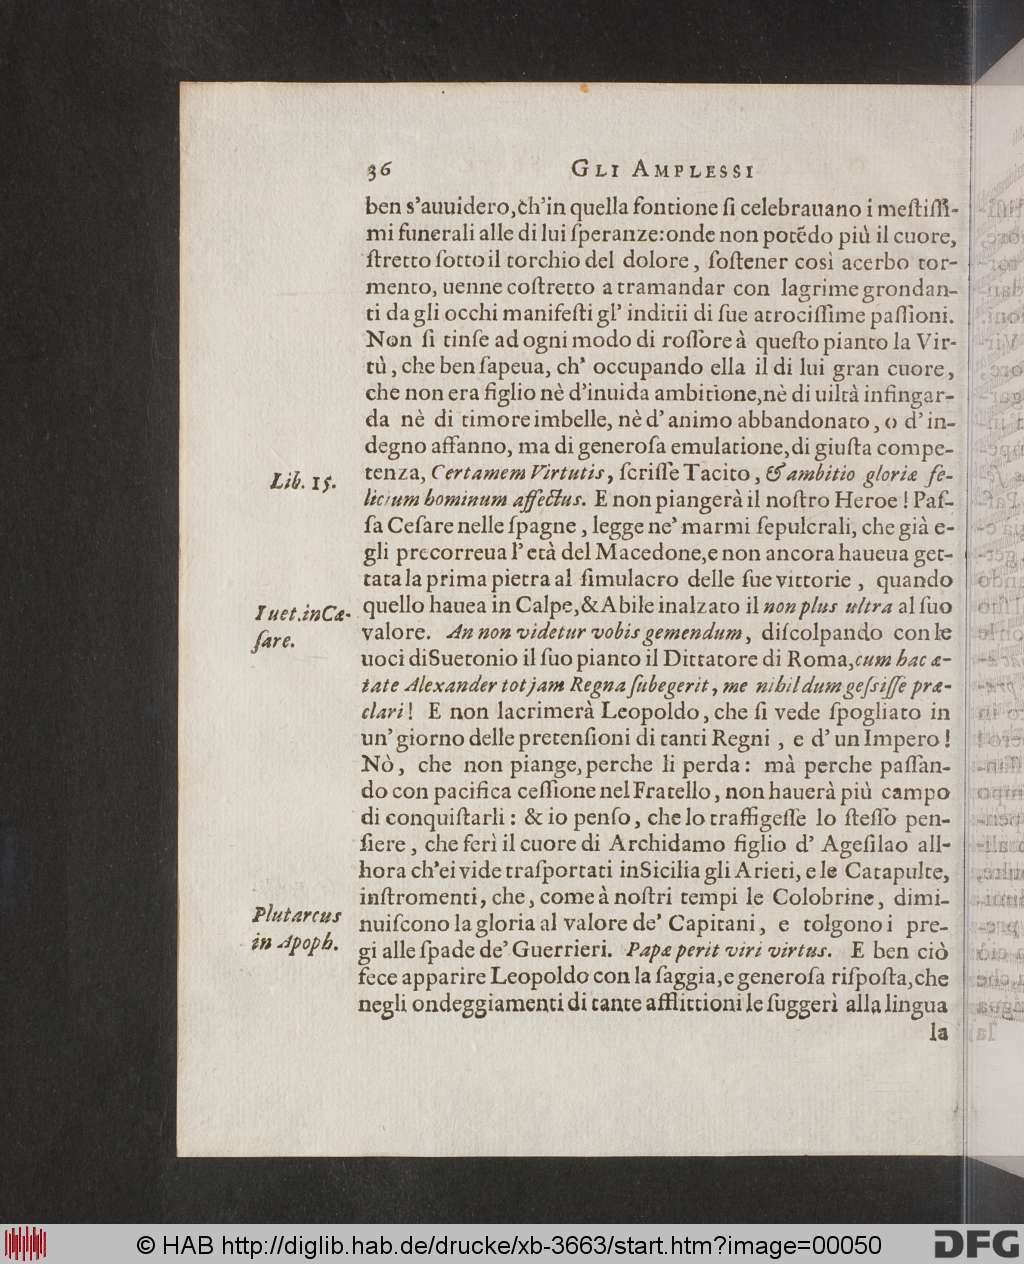 36 GLI AMPLESSI
ben s'auuidero, ch'in quella fontione ſi celebrauano i meſtiſſi-
mi funerali alle di lui ſperanze: onde non potẽdo più il cuore,
ſtretto ſotto il torchio del dolore, ſoſtener così acerbo tor-
mento, uenne coſtretto a tramandar con lagrime grondan-
ti da gli occhi manifeſti gl' inditii di ſue atrociſſime paſſioni.
Non ſi tinſe ad ogni modo di roſſore à queſto pianto la Vir-
tù, che ben ſapeua, ch' occupando ella il di lui gran cuore,
che non era figlio nè d'inuida ambitione, nè di uiltà infingar-
da nè di timore imbelle, nè d' animo abbandonato, o d' in-
degno affanno, ma di generoſa emulatione, di giuſta compe-
tenza, Certamem Virtutis, ſcriſſe Tacito, & ambitio gloriæ fe-
Lib. 15.
licium hominum affectus. E non piangerà il noſtro Heroe! Paſ-
ſa Ceſare nelle ſpagne, legge ne' marmi ſepulcrali, che già e-
gli precorreua l' età del Macedone, e non ancora haueua get-
tata la prima pietra al ſimulacro delle ſue vittorie, quando
quello hauea in Calpe, & Abile inalzato il non plus ultra al ſuo
Suet. in Cæ-
ſare.
valore. An non videtur vobis gemendum, diſcolpando con le
uoci di Suetonio il ſuo pianto il Dittatore di Roma, cum hac æ-
tate Alexander tot jam Regna ſubegerit, me nihil dum geſsiſſe præ-
clari! E non lacrimerà Leopoldo, che ſi vede ſpogliato in
un' giorno delle pretenſioni di tanti Regni, e d' un Impero!
Nò, che non piange, perche li perda: mà perche paſſan-
do con pacifica ceſſione nel Fratello, non hauerà più campo
di conquiſtarli: & io penſo, che lo traffigeſſe lo ſteſſo pen-
ſiere, che ferì il cuore di Archidamo figlio d' Ageſilao all-
hora ch'ei vide traſportati in Sicilia gli Arieti, e le Catapulte,
inſtromenti, che, come à noſtri tempi le Colobrine, dimi-
Plutarcus
in Apoph.
nuiſcono la gloria al valore de' Capitani, e tolgono i pre-
gi alle ſpade de' Guerrieri. Papæ perit viri virtus. E ben ciò
fece apparire Leopoldo con la ſaggia, e generoſa riſpoſta, che
negli ondeggiamenti di tante afflittioni le ſuggerì alla lingua
la
© HAB http://diglib.hab.de/drucke/xb-3663/start.htm?image=00050
DFG